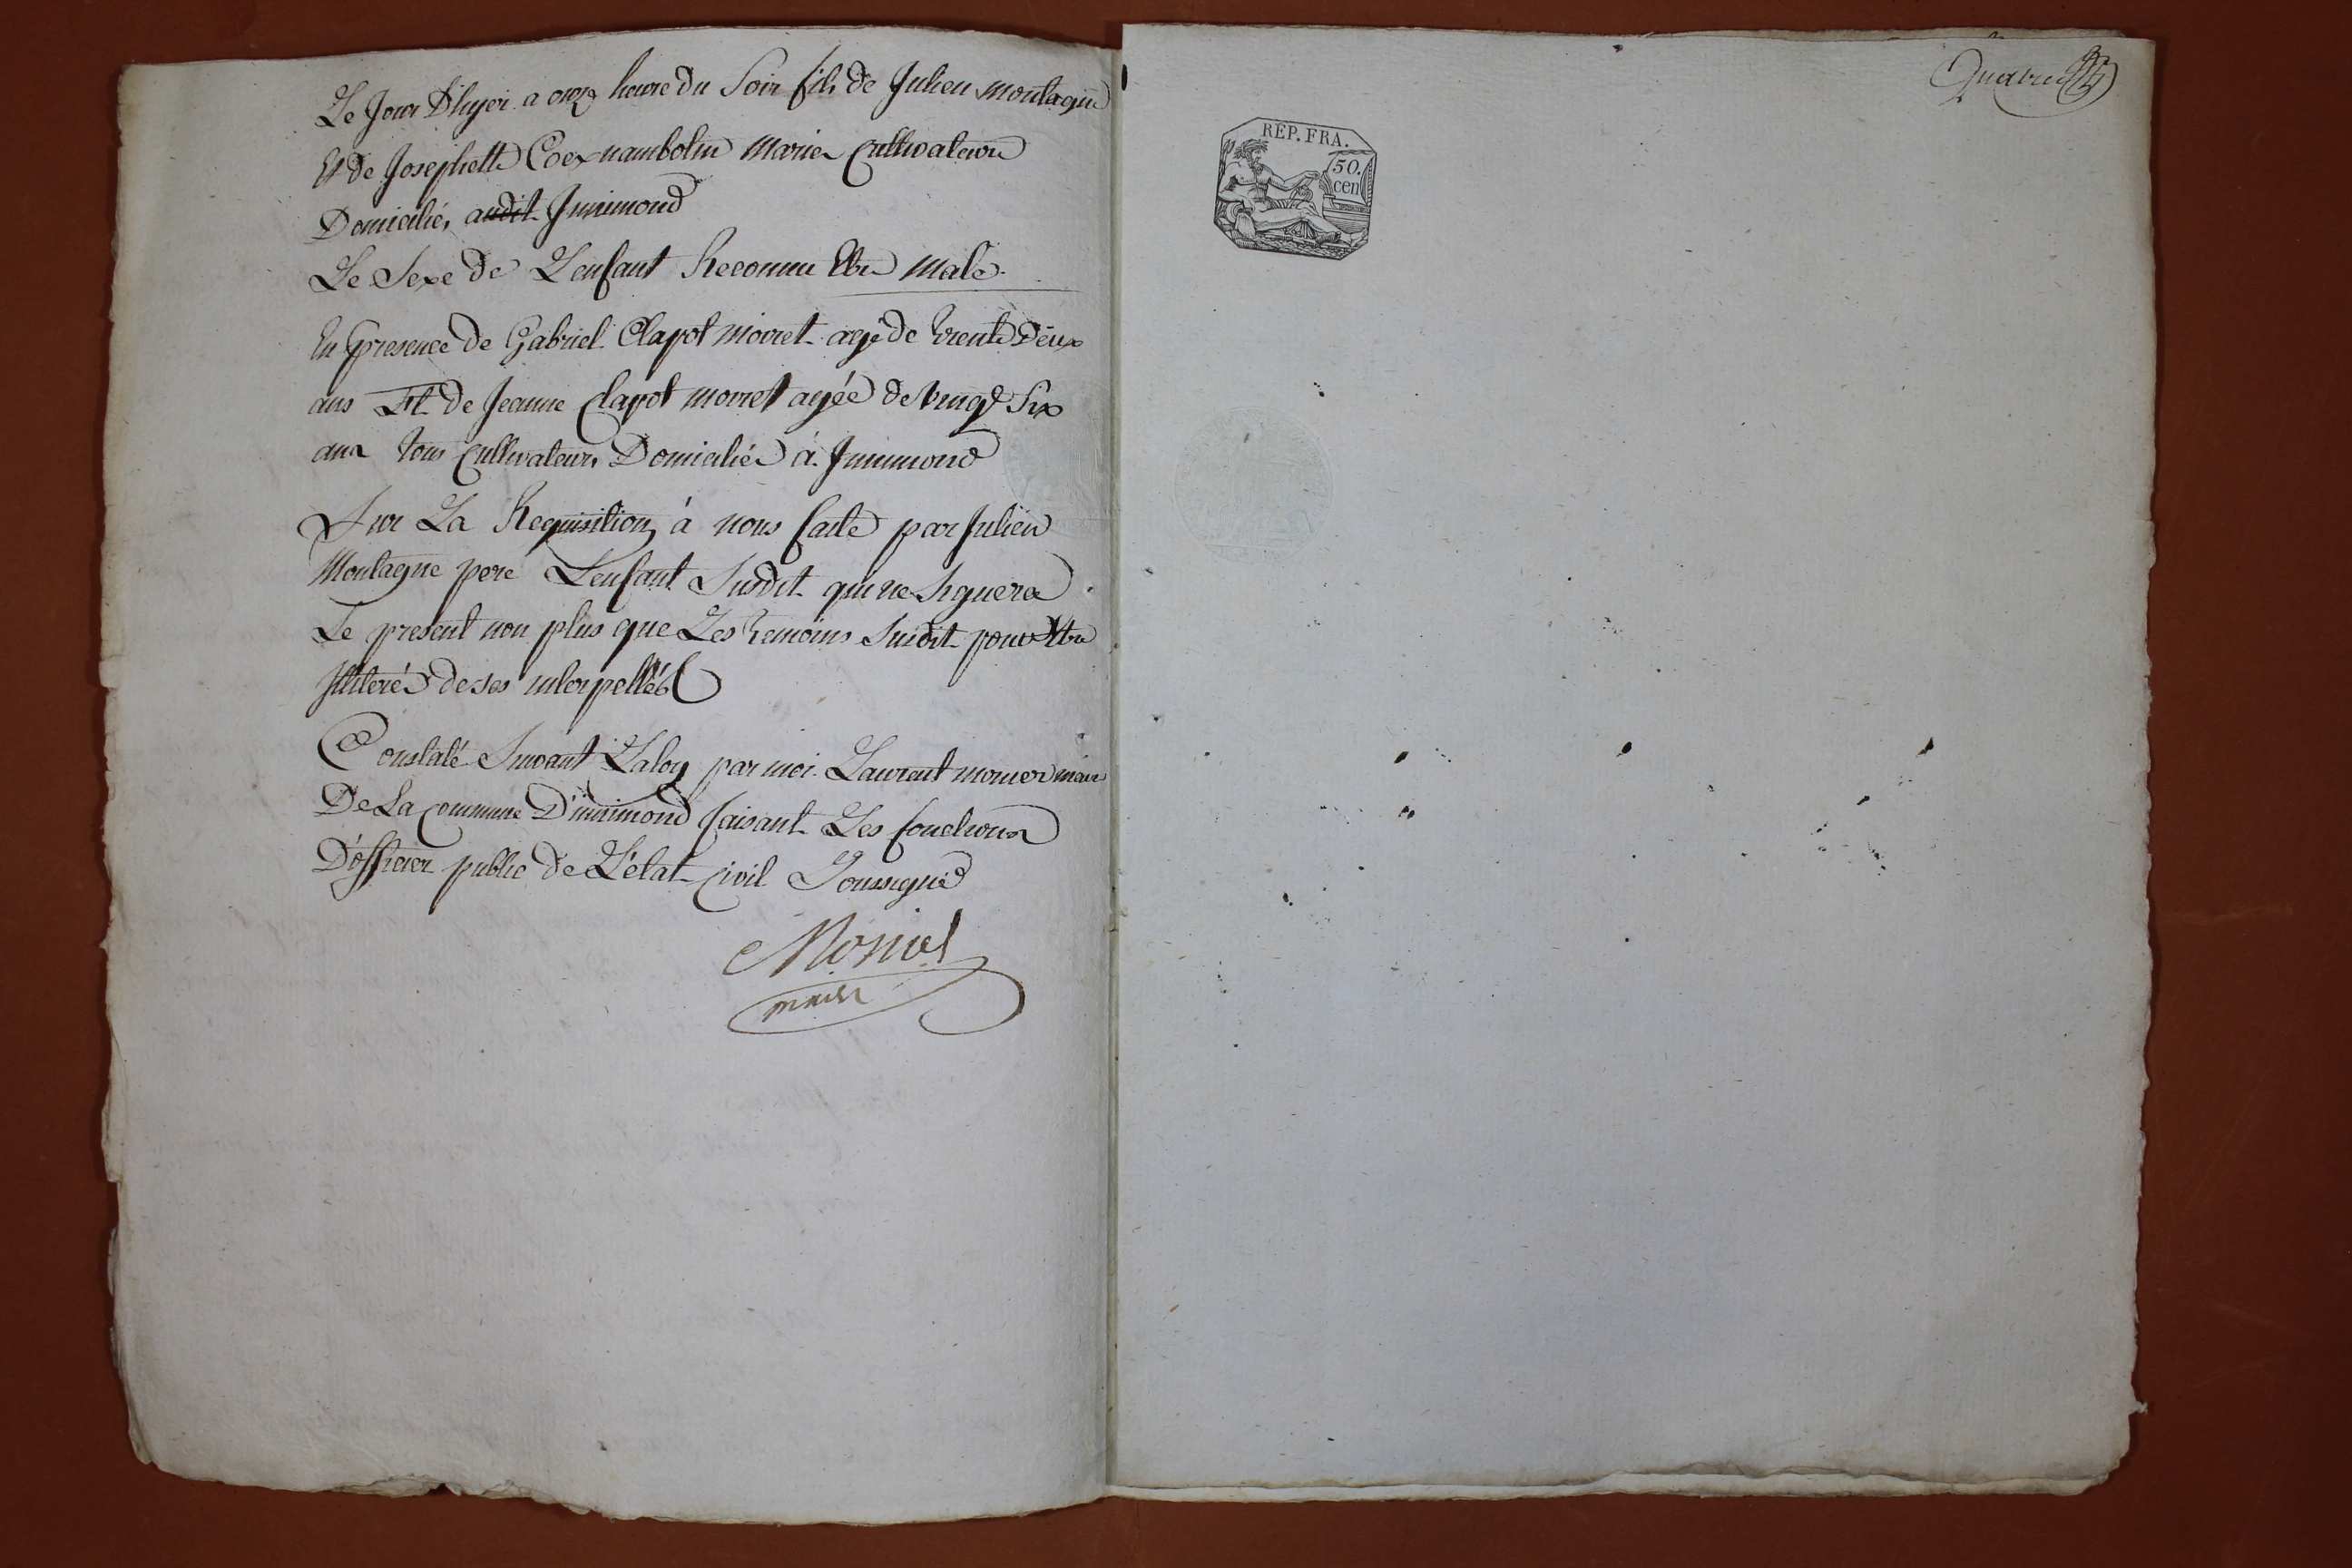 Le Jour D'hyer a onze heure du Soir fils de Julien montagne
Et de Josephette Coex nambolin Mariés Cultivateurs
Domiciliés audit Jmimond
Le Sexe de L'enfant Reconnu Etre Male.
En presence de Gabriel Clapot moiret agé de trente Deux
ans Et de Jeanne Clapot moiret agée de vingt Six
ans tous Cultivateurs Domiciliés à Jmimond
Sur La Requisition à nous faite par Julien
Montagne pere L'enfant Susdit qui ne Signera
Le present non plus que Les temoins Susdit pour Etre
Jlliterés de ce interpellés
Constaté Suivant La loy par moi Laurent monier maire
De La Commune D'imimond faisant Les fonctions
D'officier public de L'état Civil Soussigné
Moniel
maire
Quatre
REP. FRA.
50.
cen